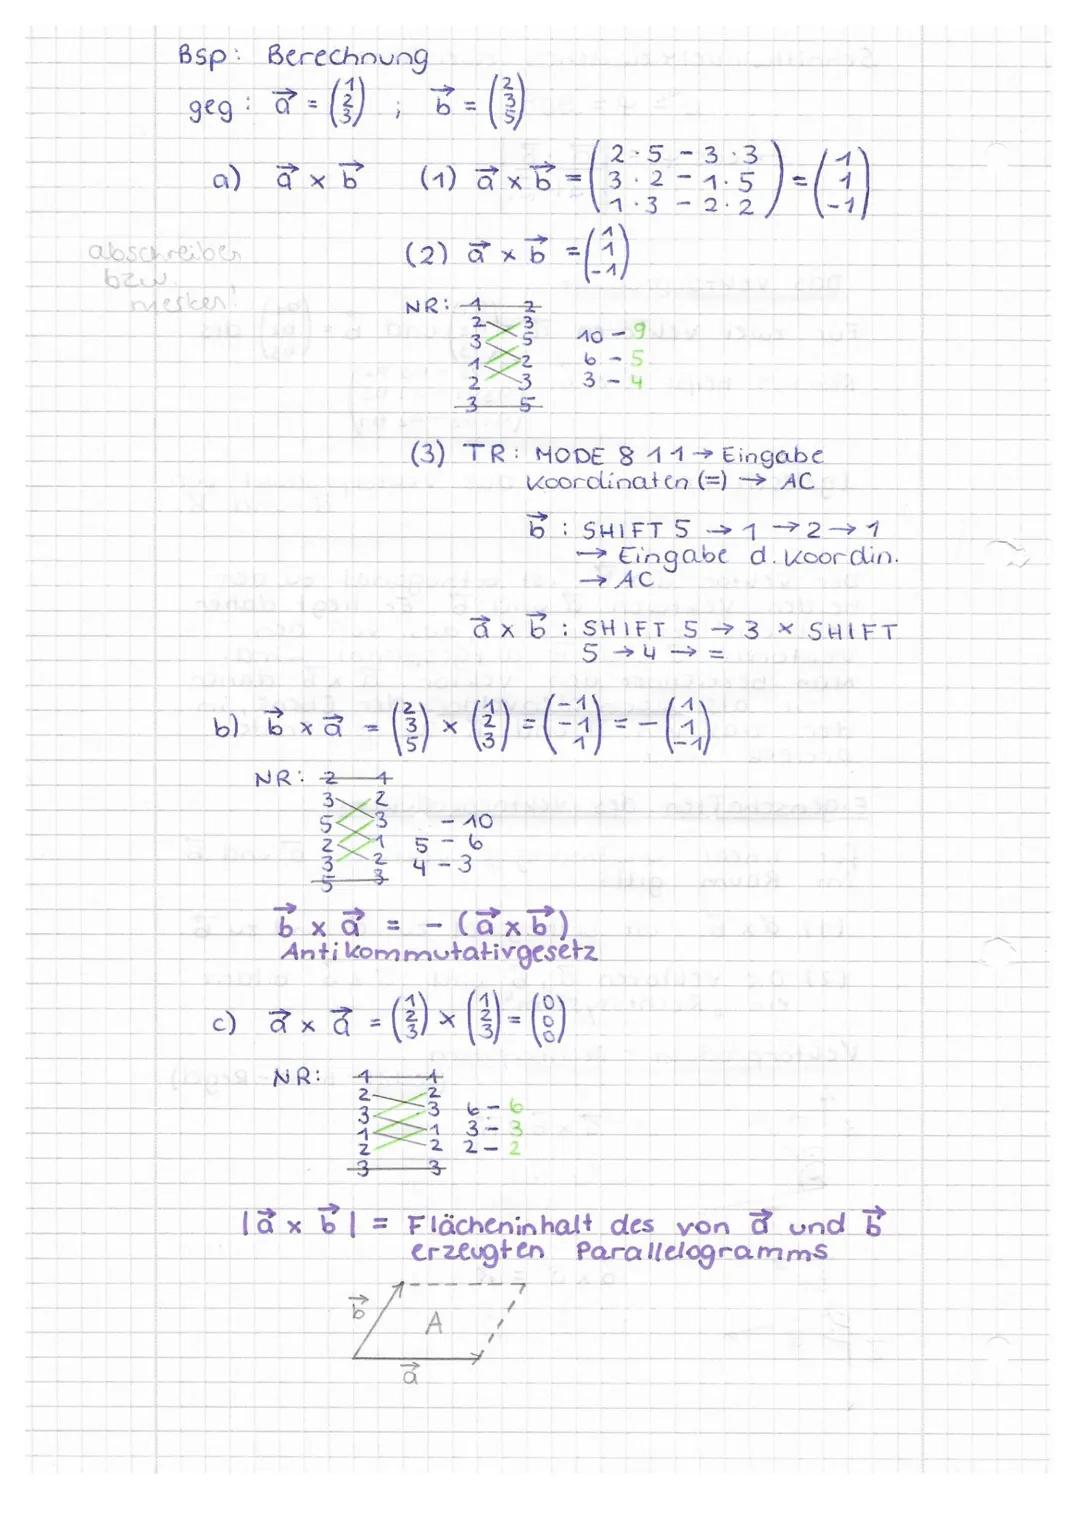 Bsp: Berechnung
geg: a⃗ = (1 2 3) ; b⃗ = (2 3 5)
a) a⃗ x b⃗ (1) a⃗ x b⃗ = (2·5 - 3·3 3·2 - 1·5 1·3 - 2·2) = (1 1 -1)
abschreiben
bzw.
merken!
(2) a⃗ x b⃗ = (1 1 -1)
NR: 1 2
2 3
3 5 10 - 9
1 2 6 - 5
2 3 3 - 4
3 5
(3) TR: MODE 8 1 1 → Eingabe
Koordinaten (=) → AC
b⃗ : SHIFT 5 → 1 → 2 → 1
→ Eingabe d. Koordin.
→ AC
a⃗ x b⃗ : SHIFT 5 → 3 x SHIFT
5 → 4 → =
b) b⃗ x a⃗ = (2 3 5) x (1 2 3) = (-1 -1 1) = -(1 1 -1)
NR: 2 1
3 2
5 3 - 10
2 1 5 - 6
3 2 4 - 3
5 3
b⃗ x a⃗ = - (a⃗ x b⃗)
Antikommutativgesetz
c) a⃗ x a⃗ = (1 2 3) x (1 2 3) = (0 0 0)
NR: 1 1
2 2
3 3 6 - 6
1 1 3 - 3
2 2 2 - 2
3 3
|a⃗ x b⃗| = Flächeninhalt des von a⃗ und b⃗
erzeugten Parallelogramms
b⃗
A
a⃗